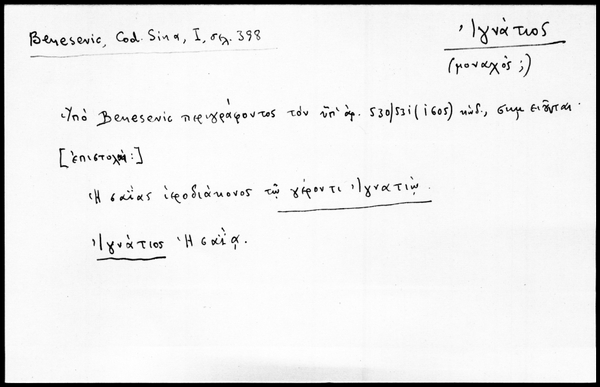 Benesevic, Cod. Sina, I, σελ. 398
Ἰγνάτιος
(μοναχός;)
Ὑπὸ Benesevic περιγράφοντος τὸν ὑπ' ἀρ. 530/531 (1605) κώδ., σημειοῦνται
[ἐπιστολαί:]
Ἡσαΐας ἱεροδιάκονος τῷ γέροντι Ἰγνατίῳ.
Ἰγνάτιος Ἡσαΐᾳ.